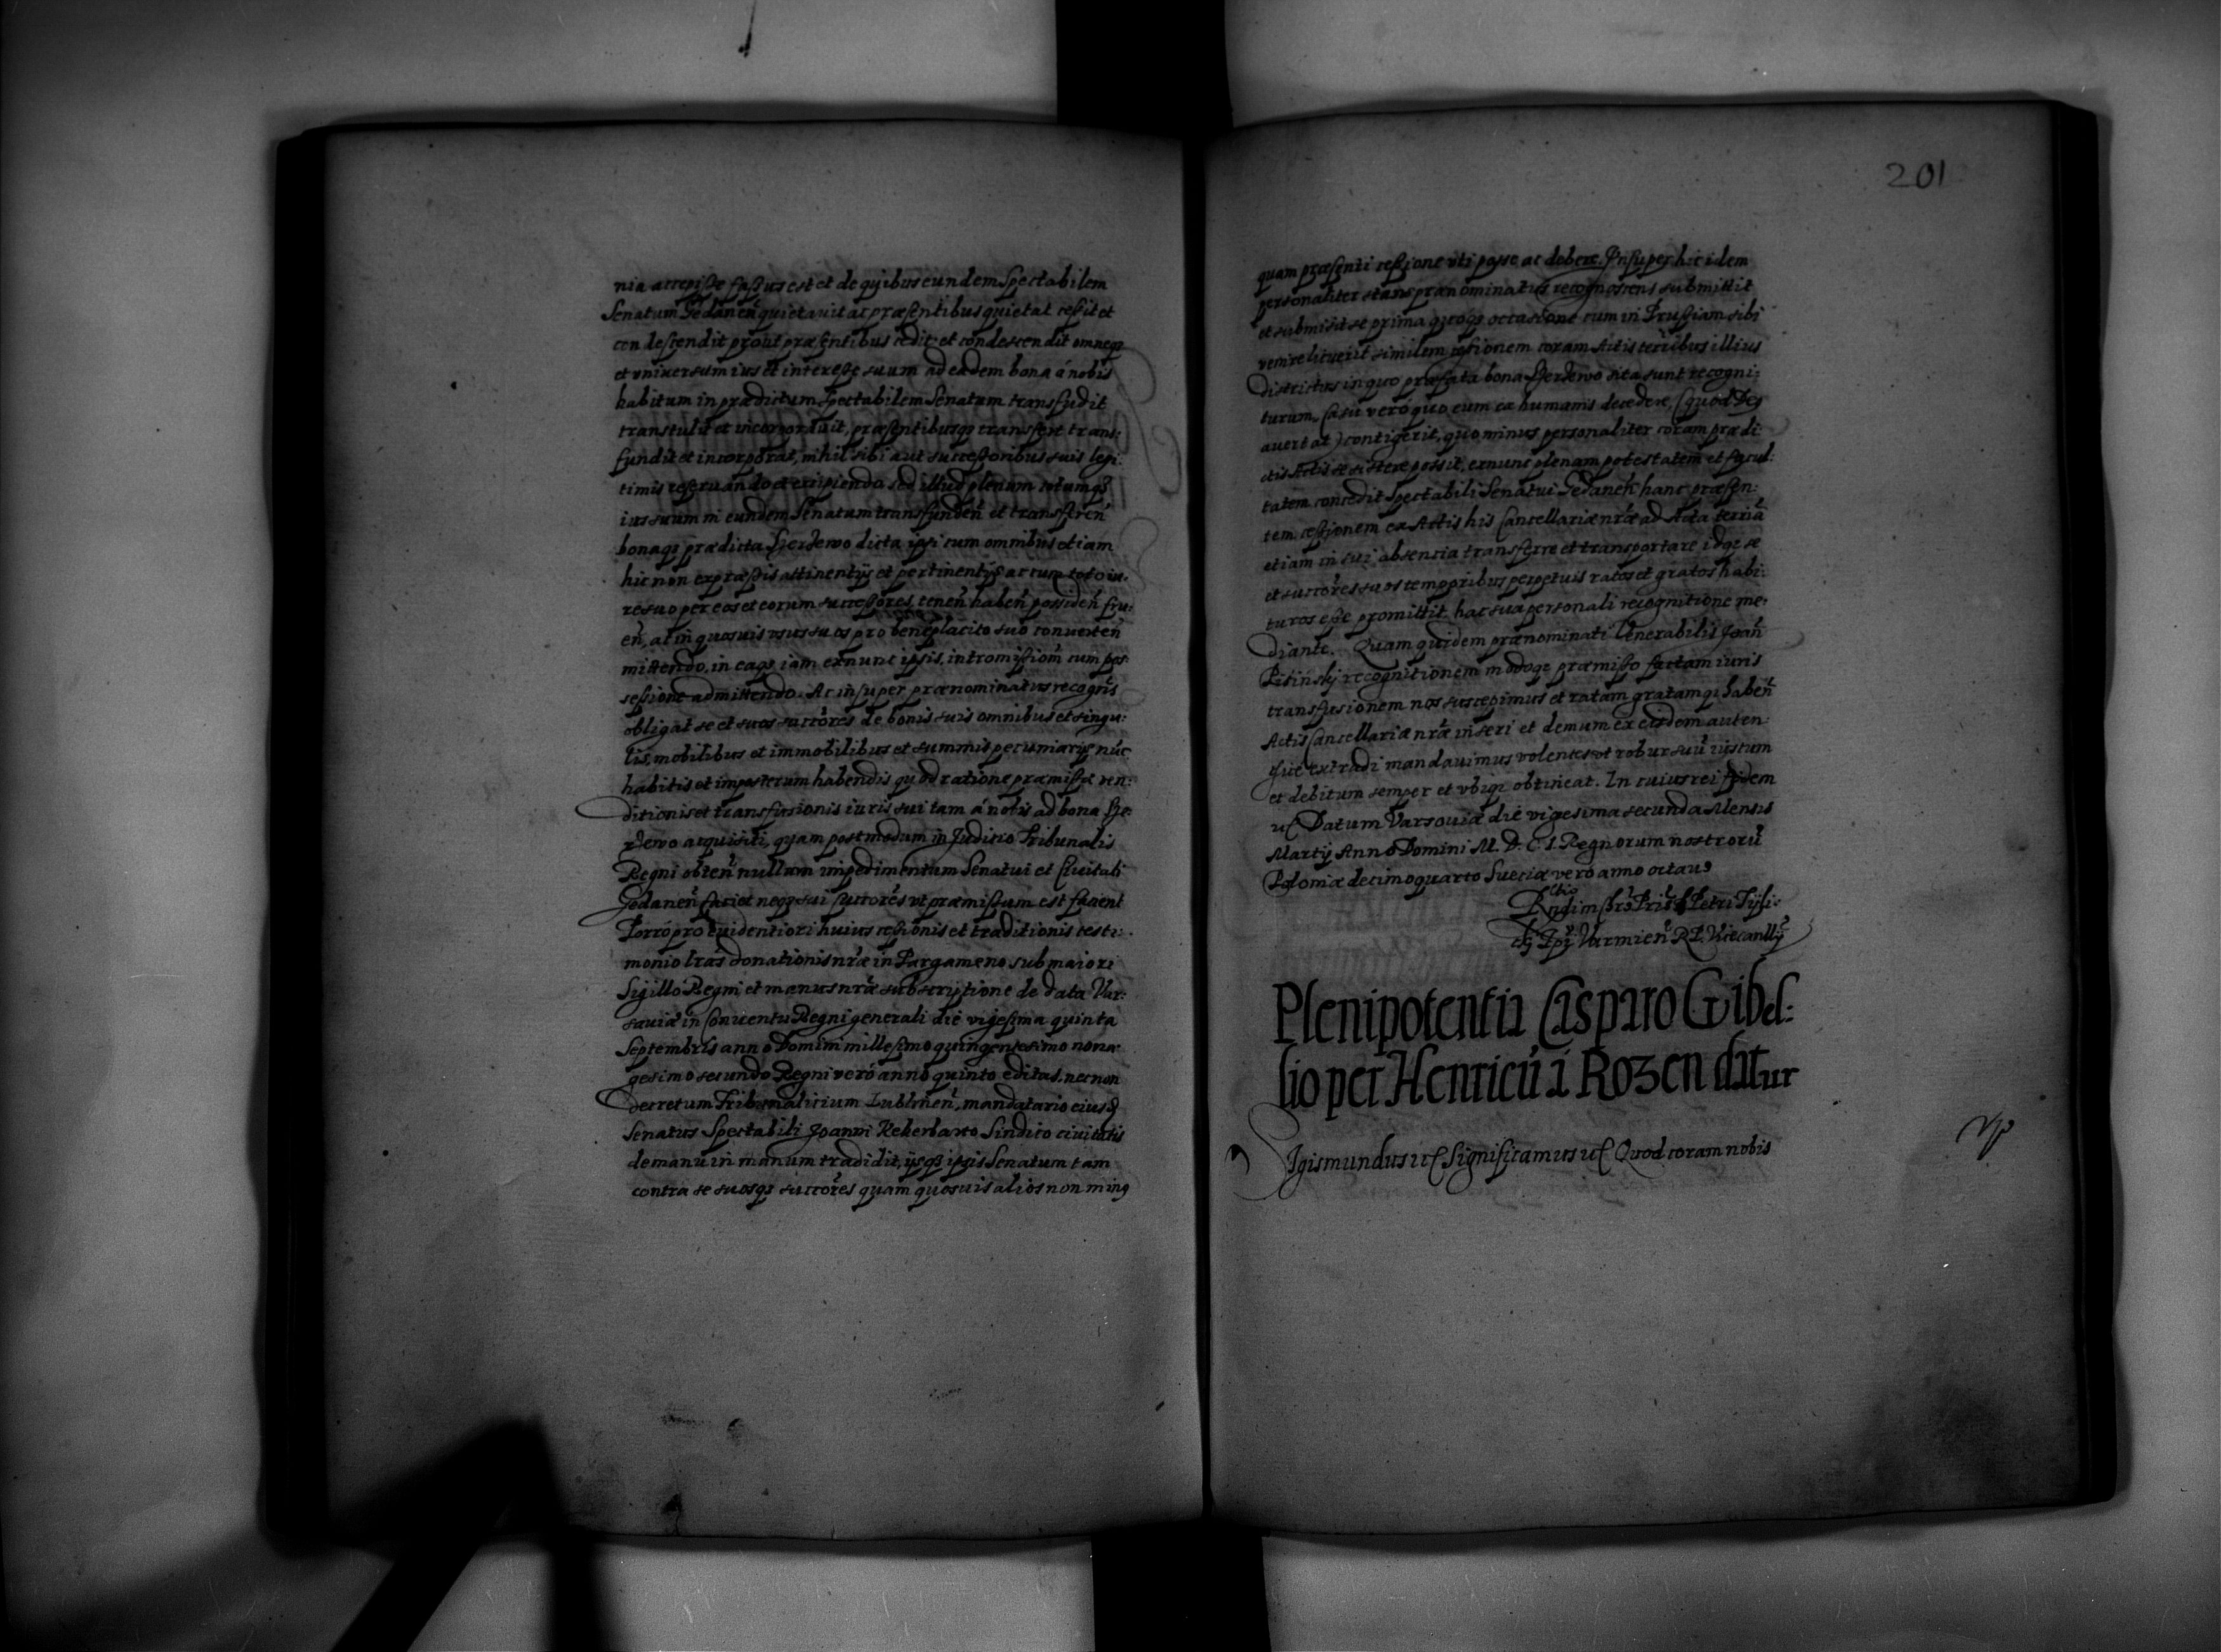 nia accepisse fassus est et de quibus eundem Spectabilem
Senatum Gedanen̄ quietauit ac præsentibus quietat cessit et
condescendit prout præsentibus cedit et condescendit omneq3
et vniuersum ius et interesse suum ad eadem bona á nobis
habitum in prædictum Spectabilem Senatum transfudit
transtulit et incorporauit, præsentibusq3 transfert trans:
fundit et incorporat, nihil sibi aut successoribus suis legi:
timis reseruando et excipiendo sed illud plenum totumq3
ius suum in eundem Senatum transfunden̄ et transferen̄
bonaq3 prædicta dicta ipsi cum omnibus etiam
hic non expressis attinentijs et pertinentijs ac cum toto iu:
re suo per eos et eorum successores, tenen̄ haben̄ possiden̄ fru:
en̄, ac in quosuis vsus suos pro beneplacito suo conuerten̄
mittendo, in eaq3 iam exnunc ipsis, intromissiom̄ cum pos:
sessione admittendo. Ac insuper prænominatus recogn̄s
obligat se et suos succōres de bonis suis omnibus et singu:
lis, mobilibus et immobilibus et summis pecuniarijs nūc
habitis et imposterum habendis quod ratione præmissæ ven:
ditionis et transfusionis iuris sui tam á nobis ad bona Sze:
rdewo acquisiti, quam postmodum in Juditio Tribunalis
Regni obten̄ nullum impedimentum Senatui et Ciuitati
Gedanen̄ faciet neq3 sui succōres vt præmissum est facient
Porró pro euidentiori huius cessionis et traditionis testi:
monio lrās donationis nrǣ in Pargameno sub maiori
Sigillo Regni et manus nrǣ subscriptione de data Var:
sauiæ in Conuentu Regni generali die vigesima quinta
Septembris anno Domini millesimo quingentesimo nona:
gesimo secundo Regni veró anno quinto editas, necnon
decretum Tribunalitium Lublinen̄, mandatario eiusd
Senatus Spectabili Joanni Kekerbarto Sindico ciuitatis
de manu in manum tradidit, ijsq3 ipsis Senatum tam
contra se suosq3 succōres quam quosuis alios non min9
201
quam præsenti cessione vti posse ac debere. Insuper hic idem
personaliter stans prænominatus recognoscens submittit
et submisit se prima quoq3 occasione cum in Prussiam sibi
venire licuerit similem cessionem coram Actis terr̄ibus illius
districtus in quo præfata bona Szerdewo sita sunt recogni:
turum, Casu veró quo eum ex humanis decedere, (quod De9
auertat) contigerit, quo minus personaliter coram prædi
ctis Actis se sistere possit, exnunc plenam potestatem et facul:
tatem concedit Spectabili Senatui Gedanen̄ hanc præsen:
tem cessionem ex Actis his Cancellariæ nrǣ ad Acta terr̄ia
etiam in sui absentia transferre et transportare idq3 se
et succōres suos temporibus perpetuis ratos et gratos habi:
turos esse promittit hac sua personali recognitione me:
diante. Quam quidem prænominati Venerabilis Joan̄
recognitionem modoq3 præmisso factam iuris
transfusionem nos suscepimus et ratam gratamq3 haben̄
Actis Cancellariæ nrǣ inseri et demum ex eisdem auten:
tice extradi mandauimus volentes vt robur suū iustum
et debitum semper et vbiq3 obtineat. In cuius rei fidem
Datum Varsouiæ die vigesima secunda Mensis
Martij Anno Domini M. D. C. I. Regnorum nostrorū
Poloniæ decimoquarto Sueciæ veró anno octau9
Petri Tyli:
cij Varmien̄ R. P. Vicecanllij
Plenipotentia Casparo Gibel:
lio per Henricū á Rozen datur
Sigismundus Significamus Quod coram nobis